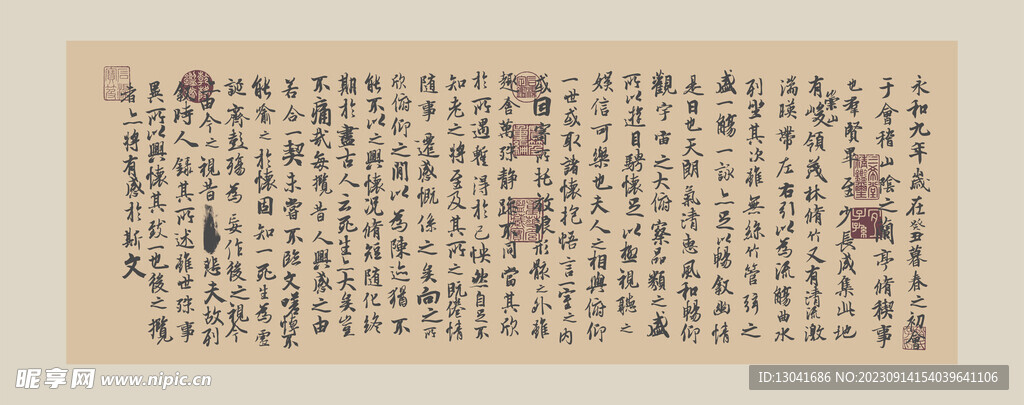 永和九年歲在癸丑暮春之初會
于會稽山陰之蘭亭脩稧事
也群賢畢至少長咸集此地
有崇山峻領茂林脩竹又有清流激
湍暎帶左右引以為流觴曲水
列坐其次雖無絲竹管弦之
盛一觴一詠亦足以暢敘幽情
是日也天朗氣清惠風和暢仰
觀宇宙之大俯察品類之盛
所以遊目騁懷足以極視聽之
娛信可樂也夫人之相與俯仰
一世或取諸懷抱悟言一室之內
或因寄所托放浪形骸之外雖
趣舍萬殊静躁不同當其欣
於所遇暫得於己怏然自足不
知老之將至及其所之既惓情
隨事遷感慨係之矣向之所
欣俯仰之閒以為陳迹猶不
能不以之興懷況脩短隨化終
期於盡古人云死生亦大矣豈
不痛哉每攬昔人興感之由
若合一契未嘗不臨文嗟悼不
能喻之於懷固知一死生為虛
誕齊彭殤為妄作後之視今
亦由今之視昔悲夫故列
敘時人錄其所述雖世殊事
異所以興懷其致一也後之攬
者亦將有感於斯文
昵享网 www.nipic.cn
ID:13041686 NO:20230914154039641106